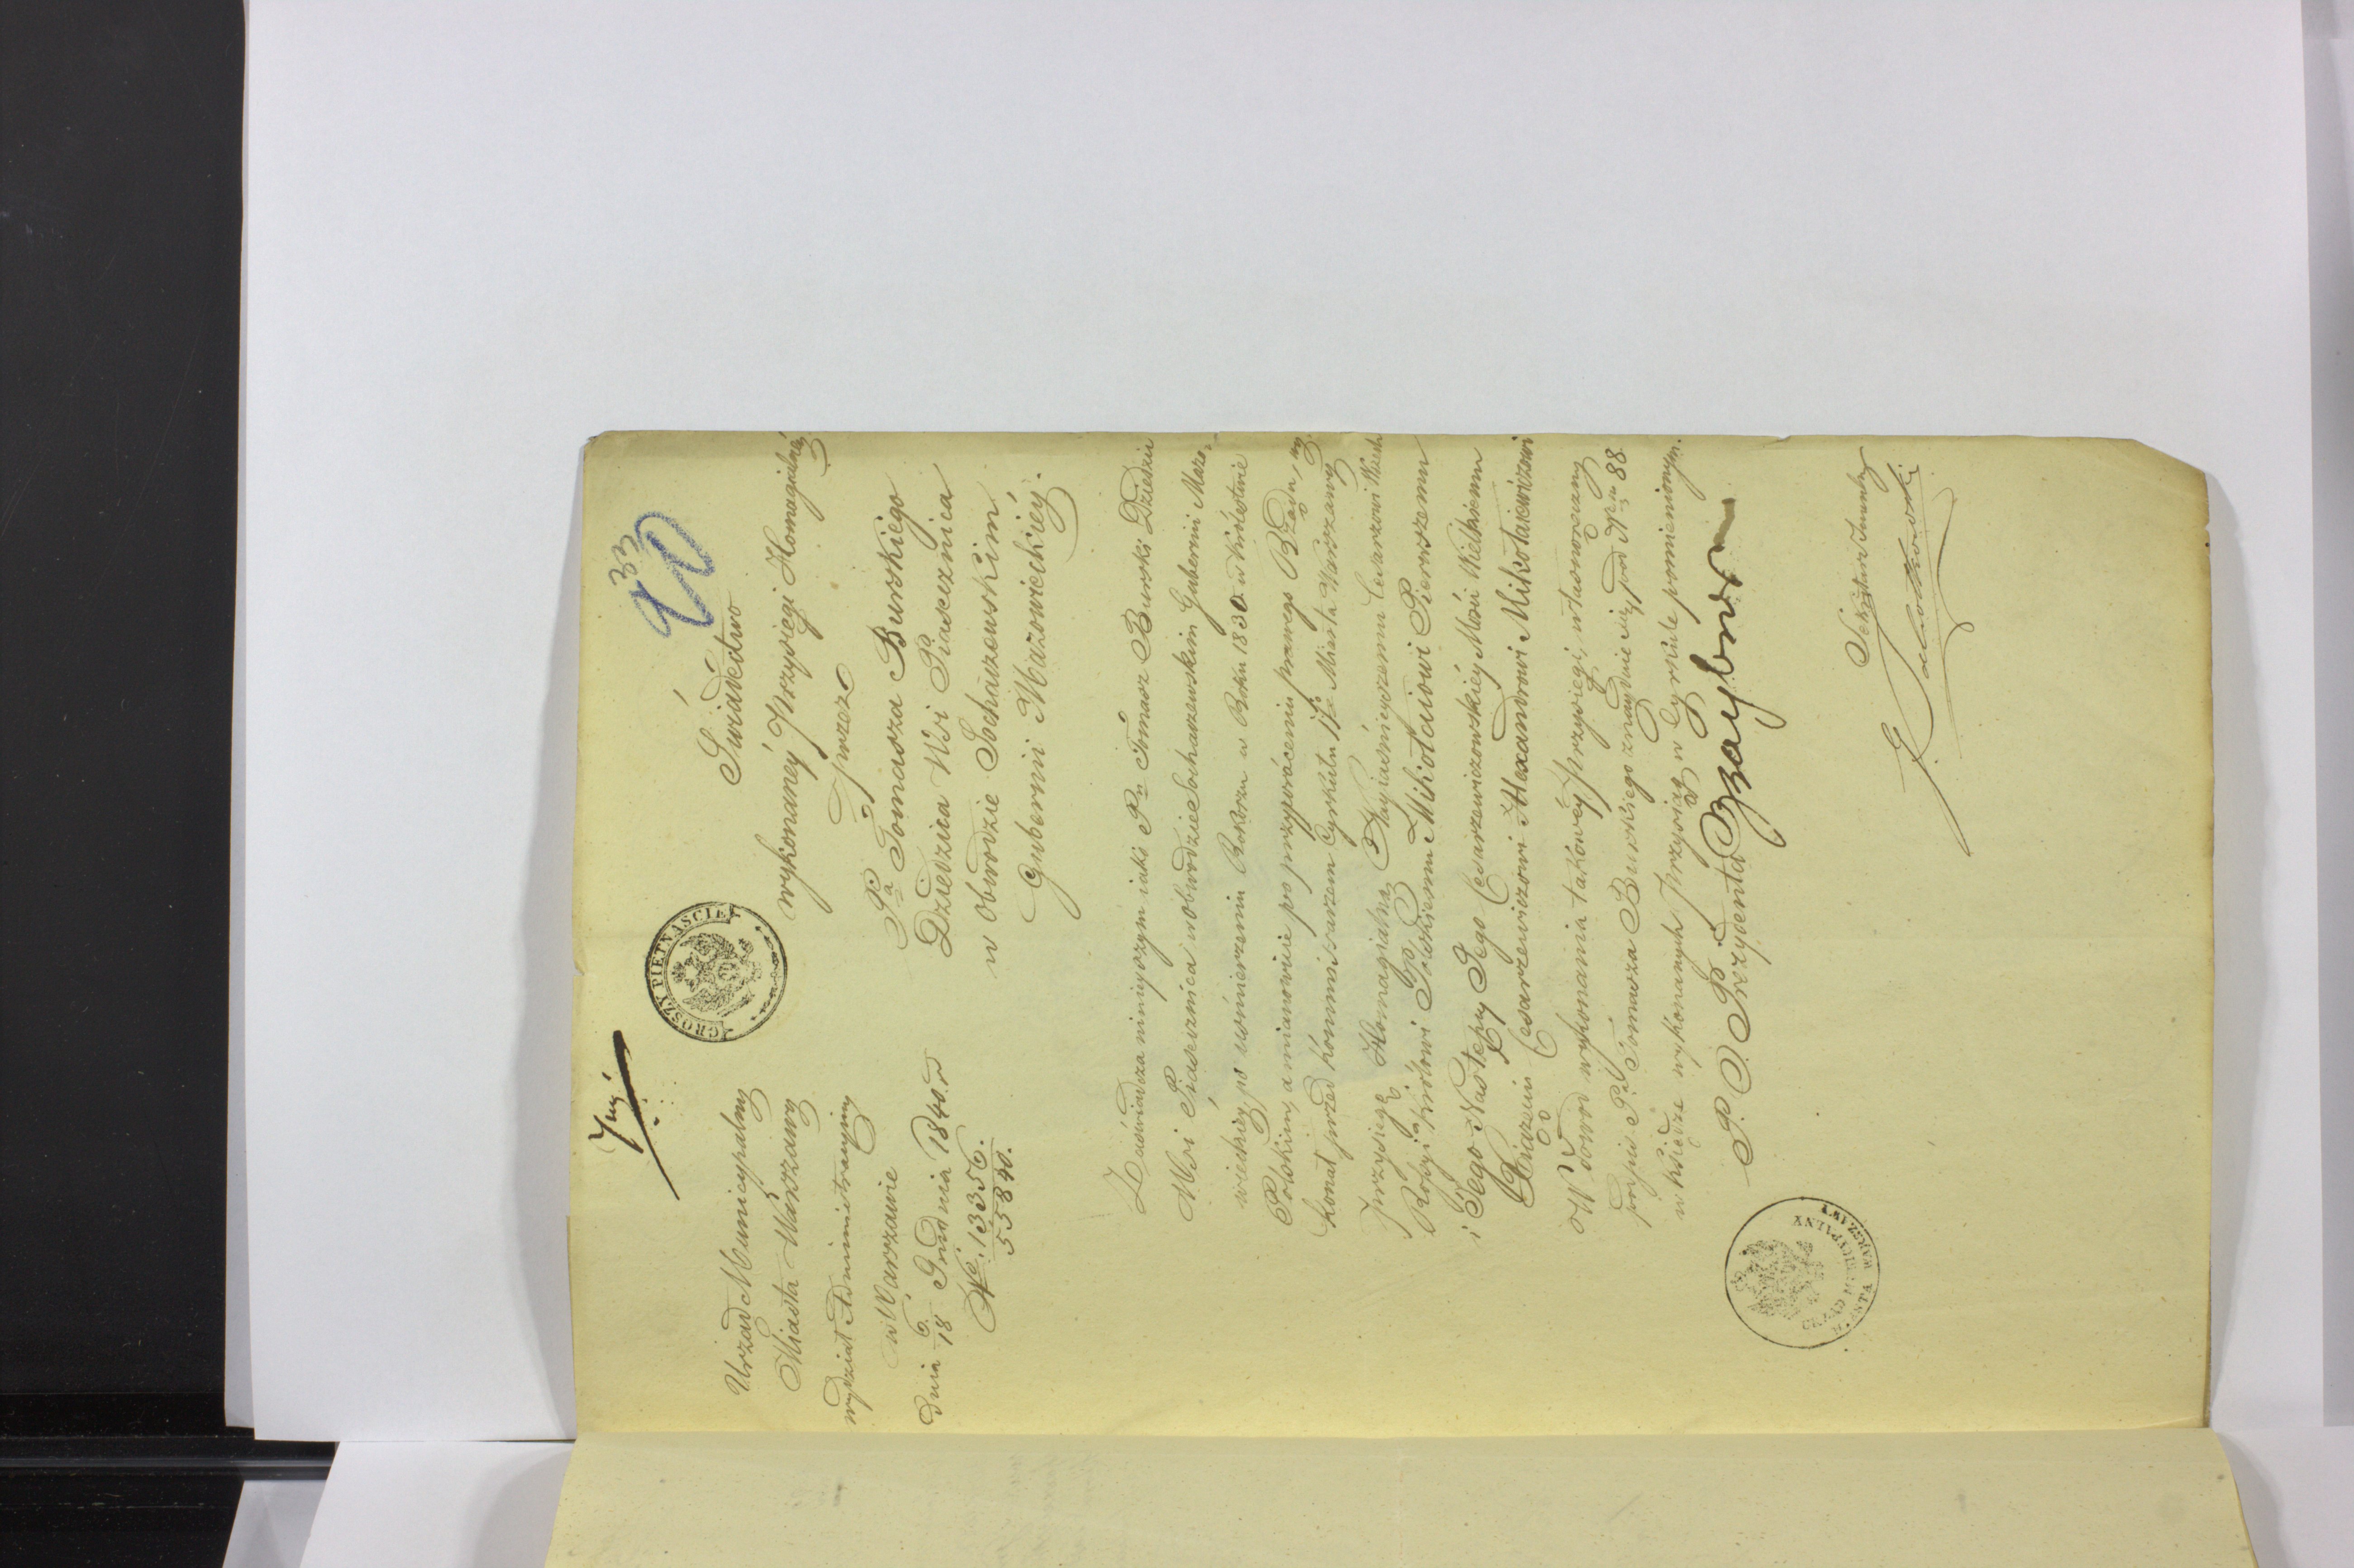 33
GROSZY PIETNAŚCIE
Urząd Municypalny
Miasta Warszawy
wydział Administracyjny
w Warszawie
dnia 6/18 Grudnia 1840. r
No. 13356.
55840.
Świadectwo
wykonanéy Przysięgi Homagialnéy
przez
Pa Tomasza Burskiego
Dziedzica Wsi Piasecznica
w obwodzie Sochaczewskim
Gubernii Mazowieckiéy.
Zaświadcza ninieyszym iako Pn Tomasz Burski Dziedzic
Wsi Piasecznica w obwodzie Sochaczewskim Gubernii Mazo-
wieckiéy po uśmierzeniu Rokoszu w Roku 1830 w Królestwie
Polskim, a mianowicie po przywróceniu prawego Rządu, wy-
konał przed Kommissarzem Cyrkułu Miasta Warszawy
przysięgę Homagialną Nayiaśnieyszemu Cesarzowi Wszech
Rossyi Królowi Polskiemu Mikołaiowi Pierwszemu
i Jego Następcy Jego Cesarzewiczowskiéy Mości Wielkiemu
Xiążęciu Cesarzewiczowi Alexandrowi Mikołaiewiczowi
W dowód wykonania takowéy przysięgi, własnoręczny
podpis Pa Tomasza Burskiego znayduie się pod Nrem 88
w księdze wykonanych przysiąg w Cyrkule pomienionym.
P. O. Prezydenta
Sekretarz
URZĄD MUNICYPALNY
MIASTA WARSZAWY